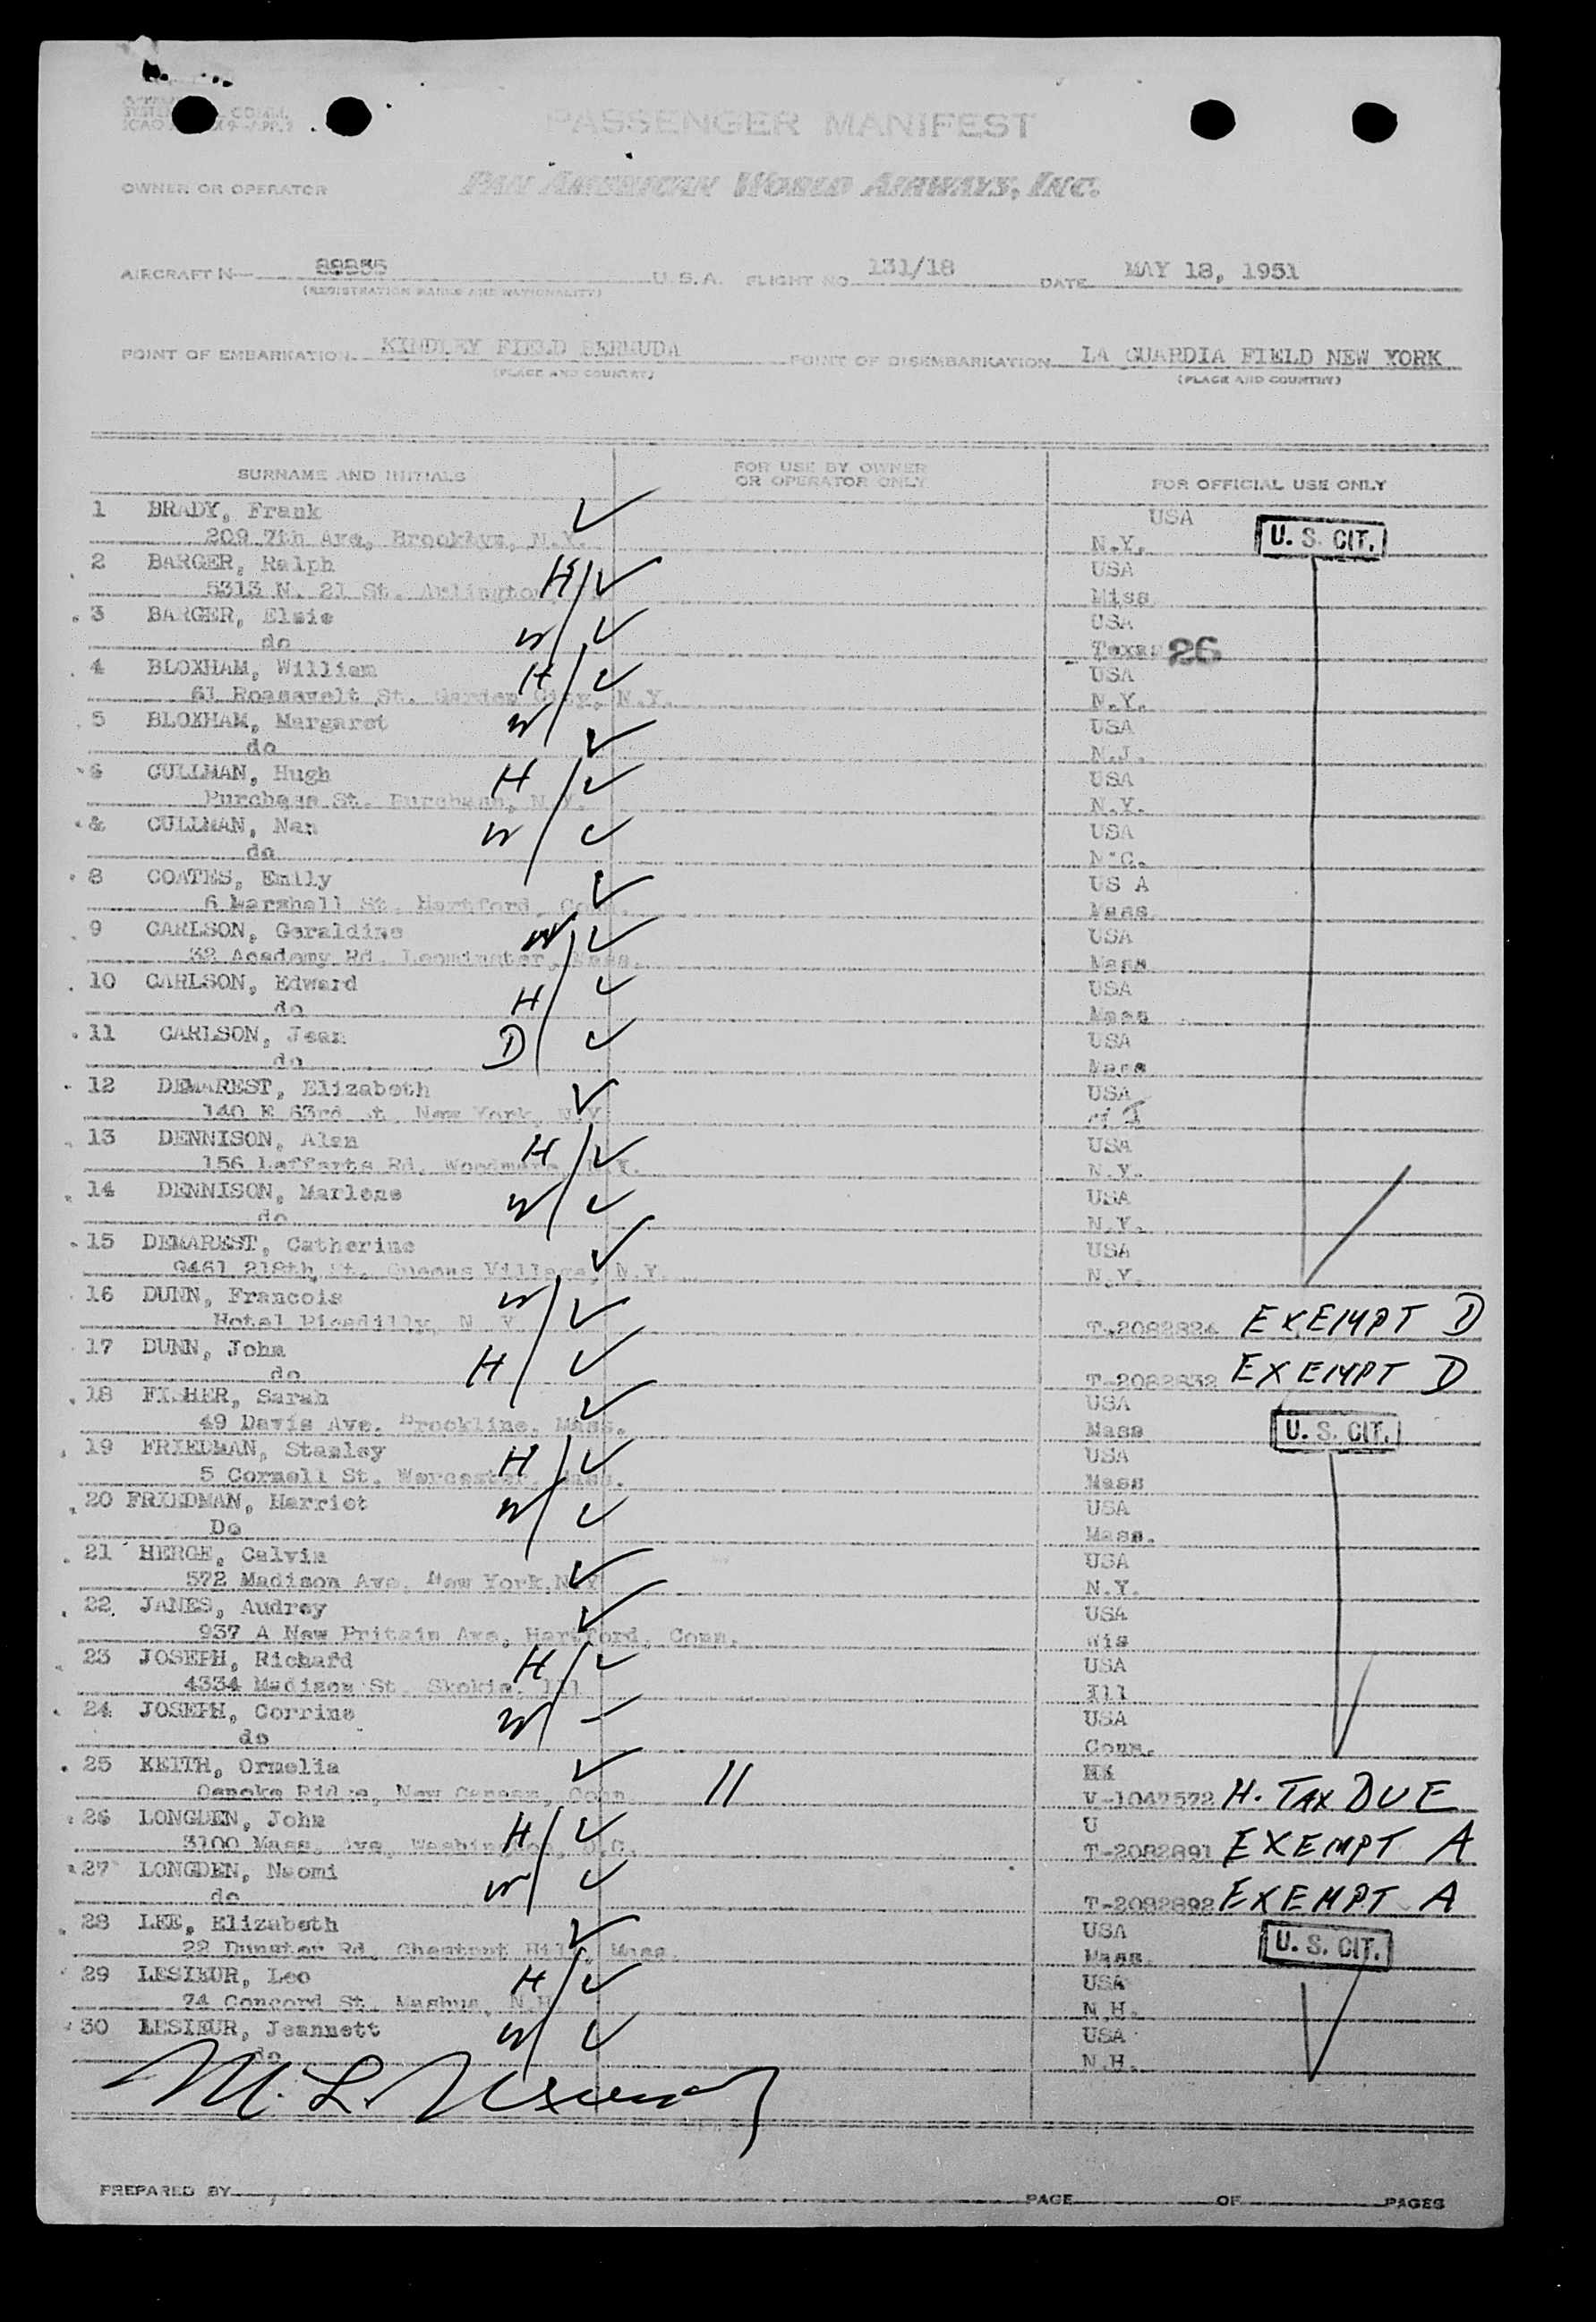 PASSENGER MANIFEST
OWNER OR OPERATOR PAN AMERICAN WORLD AIRWAYS, INC.
AIRCRAFT N— U.S.A. FLIGHT NO 131/18 DATE MAY 18, 1951
(REGISTRATION MARKS AND NATIONALITY)
POINT OF EMBARKATION KINDLEY FIELD BERMUDA POINT OF DISEMBARKATION LA GUARDIA FIELD NEW YORK
(PLACE AND COUNTRY) (PLACE AND COUNTRY)
SURNAME AND INITIALS FOR USE BY OWNER OR OPERATOR ONLY FOR OFFICIAL USE ONLY
1 BRADY, Frank ✓ USA
209 7th Ave, Brooklyn, N.Y. N.Y. U. S. CIT.
2 BARGER, Ralph H ✓ USA
5313 N. 21 St. Arlington, Miss
3 BARGER, Elsie W ✓ USA
do Texas 26
4 BLOXHAM, William H ✓ USA
61 Roosevelt St. Garden City, N.Y. N.Y.
5 BLOXHAM, Margaret W ✓ USA
do N.J.
6 CULLMAN, Hugh H ✓ USA
Purchase St. Purchase, N.Y. N.Y.
& CULLMAN, Nan W ✓ USA
do N.C.
8 COATES, Emily ✓ US A
6 Marshall St. Hartford, Conn. Mass.
9 CARLSON, Geraldine W ✓ USA
32 Academy Rd. Leominster, Mass. Mass
10 CARLSON, Edward H ✓ USA
do Mass
11 CARLSON, Jean D ✓ USA
do Mass
12 DEMAREST, Elizabeth ✓ USA
140 E 63rd St. New York, N.Y.
13 DENNISON, Alan H ✓ USA
156 Lafferts Rd. Woodmere, N.Y. N.Y.
14 DENNISON, Marlene W ✓ USA
do N.Y.
15 DEMAREST, Catherine ✓ USA
9461 218th St. Queens Village, N.Y. N.Y.
16 DUNN, Francois W ✓
Hotel Picadilly, N Y T-2082824 EXEMPT D
17 DUNN, John H ✓
do T-2082832 EXEMPT D
18 FISHER, Sarah ✓ USA
49 Davis Ave. Brookline, Mass. Mass U. S. CIT.
19 FRIEDMAN, Stanley H ✓ USA
5 Cornell St. Worcester, Mass. Mass
20 FRIEDMAN, Harriet W ✓ USA
Do Mass.
21 HERGE, Calvin ✓ USA
572 Madison Ave. New York, N.Y N.Y.
22. JANES, Audrey ✓ USA
937 A New Britain Ave, Hartford, Conn. Wis
23 JOSEPH, Richard H ✓ USA
4334 Madison St. Skokie, Ill Ill
24 JOSEPH, Corrine W USA
do Conn.
25 KEITH, Ormelia ✓
Oenoke Ridge, New Canaan, Conn. 11 V-1047572 H. TAX DUE
26 LONGDEN, John H ✓ U
3100 Mass. Ave, Washington, D.C. T-2082891 EXEMPT A
27 LONGDEN, Naomi W ✓
do T-2082892 EXEMPT A
28 LEE, Elizabeth ✓ USA
22 Dunster Rd, Chestnut Hill, Mass. Mass. U. S. CIT.
29 LESIEUR, Leo H ✓ USA
74 Concord St. Nashua, N.H. N.H.
30 LESIEUR, Jeannett W ✓ USA
do N.H.
M. L.
PREPARED BY PAGE OF PAGES